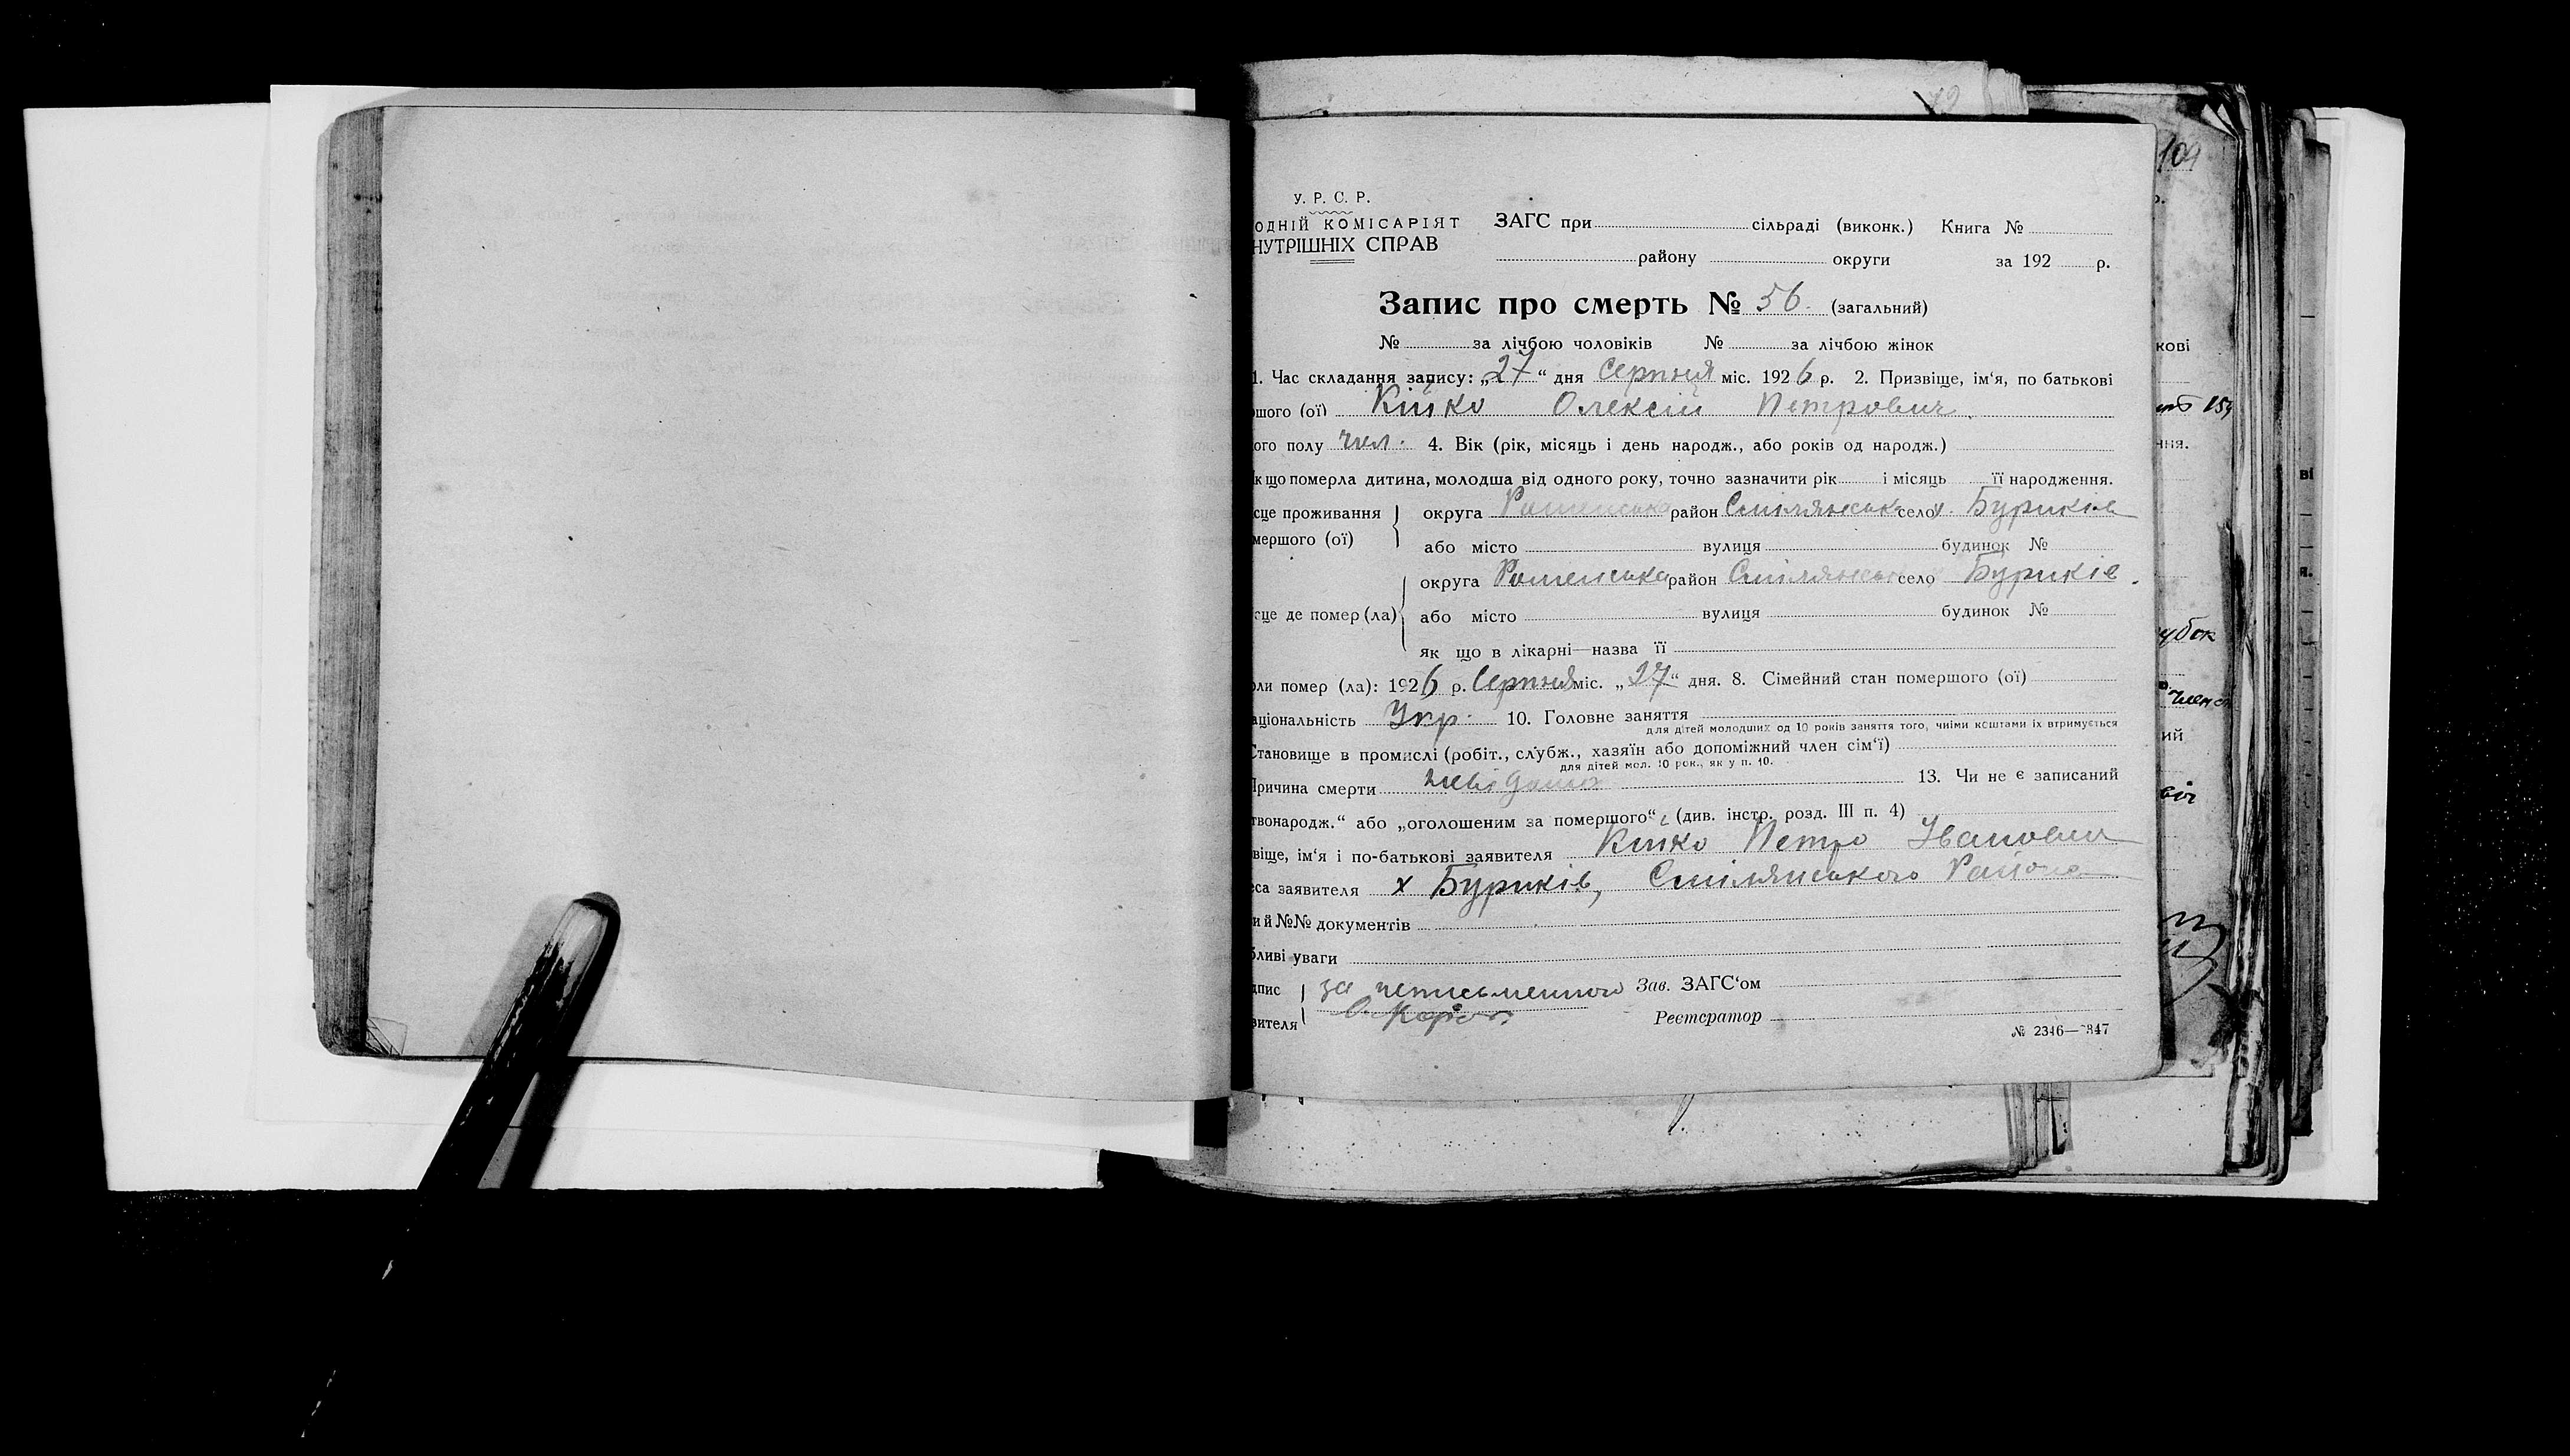 У. Р. С. Р.
ОДНІЙ КОМІСАРІЯТ ЗАГС при сільраді (виконк.) Книга №
НУТРІШНІХ СПРАВ
району округи за 192 р.
Запис про смерть № 56. (загальний)
№ за лічбою чоловіків № за лічбою жінок
1. Час складання запису: „27“ дня Серпня міс. 1926 р. 2. Призвіще, ім‘я, по батькові
ршого (ої) Кійко Олексій Петрович.
ого полу чол. 4. Вік (рік, місяць і день народж., або років од народж.)
к що померла дитина, молодша від одного року, точно зазначити рік і місяць її народження.
сце проживання округа Роменська район Смілянськ село х. Буриків
мершого (ої)
або місто вулиця будинок №
округа Роменська район Смілянськ село Буриків.
сце де помер (ла) або місто вулиця будинок №
як що в лікарні—назва її
оли помер (ла): 1926 р. Серпня міс. „27“ дня. 8. Сімейний стан помершого (ої)
аціональність Укр. 10. Головне заняття
для дітей молодших од 10 років заняття того, чиїми коштами їх втримується
Становище в промислі (робіт., службж., хазяїн або допоміжний член сім‘ї)
для дітей мол. 10 рок., як у п. 10.
Причина смерти невідома 13. Чи не є записаний
твонародж.“ або „оголошеним за помершого“ (див. інстр. розд. III п. 4)
віще, ім‘я і по-батькові заявителя Кійко Петро Іванович
еса заявителя х Буриків, Смілянського Района
и й №№ документів
бливі уваги
дпис за неписьменного Зав. ЗАГС‘ом
вителя Реєстратор
№ 2346—347
109
кові
ння.
убок
член
ий
ві
я.